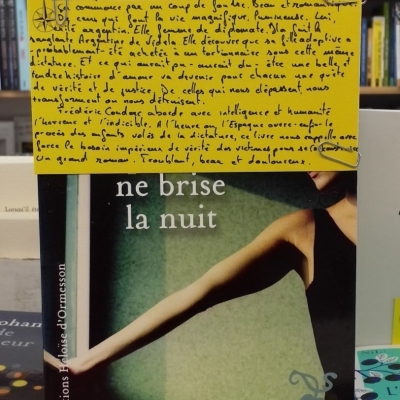 commence par un coup de foudre. Beau et romantique
ceux qui font la vie magnifique, lumineuse. Lui,
argentin. Elle femme de diplomate. Il a fui la
sanglante Argentine de Videla. Elle découvre que sa fille adoptive a
probablement été achetée à un tortionnaire sous cette même
dictature. Et ce qui aurait pu être une belle et
tendre histoire d'amour va devenir pour chacun une quête
de vérité et de justice. De celles qui nous dépassent, nous
transforment ou nous détruisent.
Frédéric Couderc aborde avec intelligence et humanité
l'horreur et l'indicible. A l'heure où l'Espagne ouvre enfin le
procès des enfants volés de la dictature, ce livre nous rappelle avec
force le besoin impérieux de vérité des victimes pour se
Un grand roman. Troublant, beau et douloureux.
ne brise
la nuit
Héloïse d'Ormesson